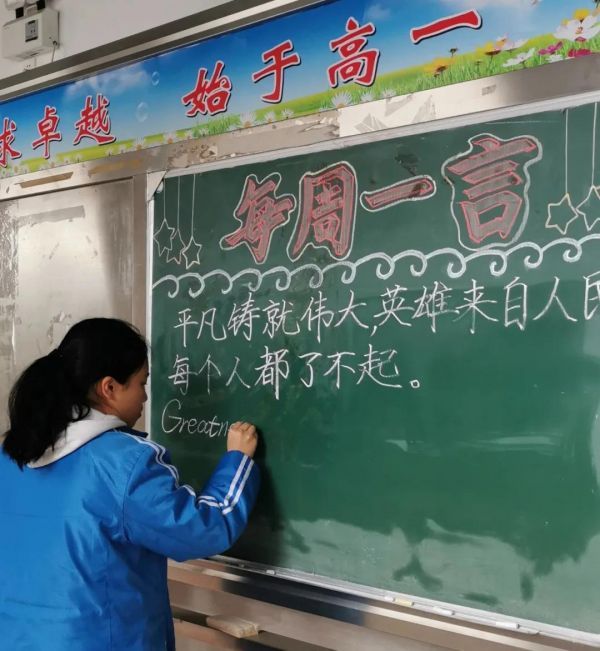 求卓越 始于高一
每周一言
平凡铸就伟大,英雄来自人民
每个人都了不起。
Greatn